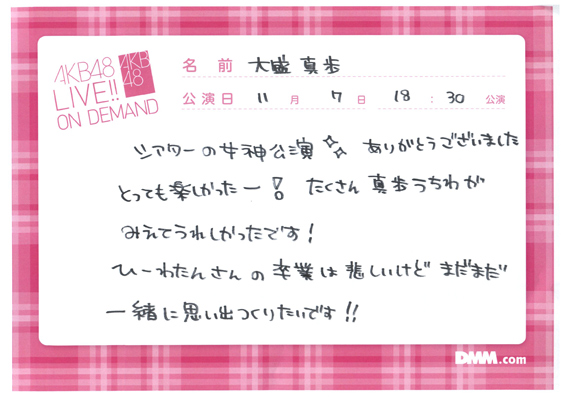 AKB48
LIVE!!
ON DEMAND
AKB
48
名前 大盛真歩
公演日 11月 7日 18:30公演
シアターの女神公演 ありがとうございました
とっても楽しかったー! たくさん 真歩うちわが
みえてうれしかったです!
ひーわたんさんの卒業は悲しいけど まだまだ
一緒に思い出つくりたいです!!
DMM.com